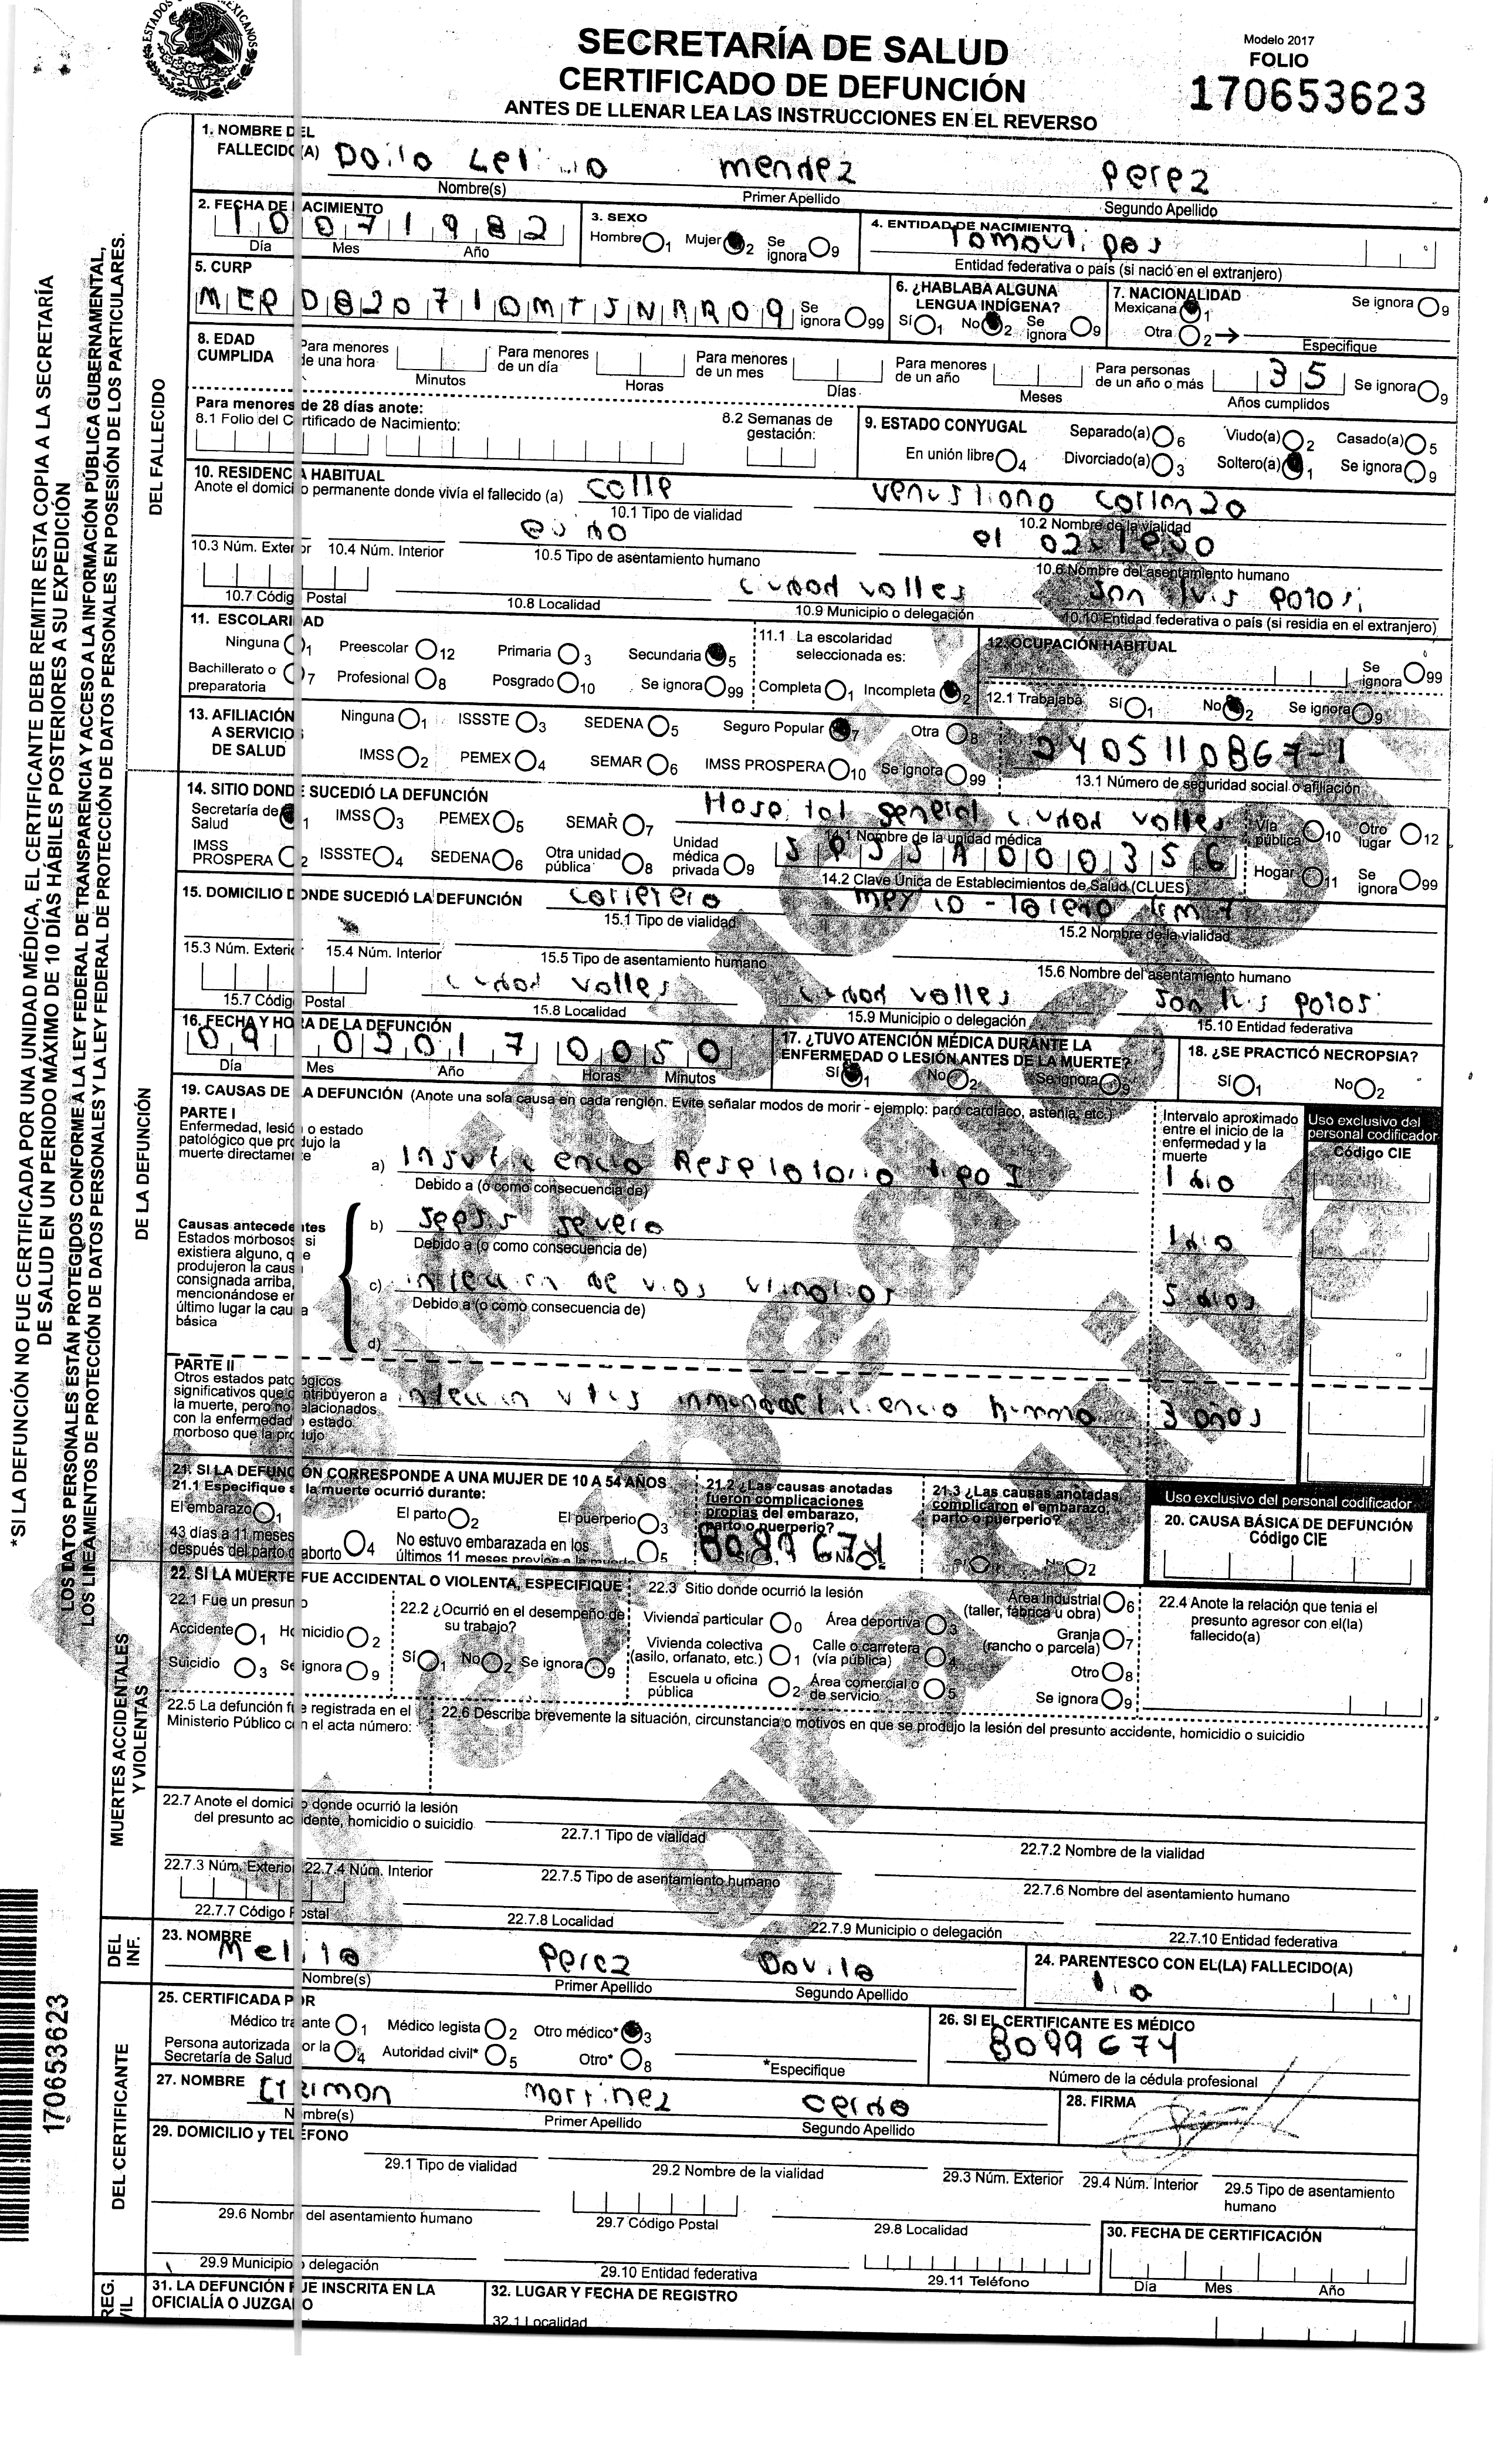 ESTADOS UNIDOS MEXICANOS
SECRETARÍA DE SALUD
CERTIFICADO DE DEFUNCIÓN
ANTES DE LLENAR LEA LAS INSTRUCCIONES EN EL REVERSO
Modelo 2017
FOLIO
170653623
*SI LA DEFUNCIÓN NO FUE CERTIFICADA POR UNA UNIDAD MÉDICA, EL CERTIFICANTE DEBE REMITIR ESTA COPIA A LA SECRETARÍA
DE SALUD EN UN PERIODO MÁXIMO DE 10 DÍAS HÁBILES POSTERIORES A SU EXPEDICIÓN
LOS DATOS PERSONALES ESTÁN PROTEGIDOS CONFORME A LA LEY FEDERAL DE TRANSPARENCIA Y ACCESO A LA INFORMACIÓN PÚBLICA GUBERNAMENTAL,
LOS LINEAMIENTOS DE PROTECCIÓN DE DATOS PERSONALES Y LA LEY FEDERAL DE PROTECCIÓN DE DATOS PERSONALES EN POSESIÓN DE LOS PARTICULARES.
DEL FALLECIDO
1. NOMBRE DEL FALLECIDO(A) mendez perez
Nombre(s) Primer Apellido Segundo Apellido
2. FECHA DE NACIMIENTO 10 07 1982
Día Mes Año
3. SEXO
Hombre 1 Mujer 2 Se ignora 9
4. ENTIDAD DE NACIMIENTO Tamaulipas
Entidad federativa o país (si nació en el extranjero)
5. CURP
MERD820710MTSNRR09 Se ignora 99
6. ¿HABLABA ALGUNA LENGUA INDÍGENA?
Sí 1 No 2 Se ignora 9
7. NACIONALIDAD
Mexicana 1 Se ignora 9
Otra 2 Especifique
8. EDAD CUMPLIDA
Para menores de una hora Minutos
Para menores de un día Horas
Para menores de un mes Días
Para menores de un año Meses
Para personas de un año o más 35 Años cumplidos Se ignora 9
Para menores de 28 días anote:
8.1 Folio del Certificado de Nacimiento:
8.2 Semanas de gestación:
9. ESTADO CONYUGAL
Separado(a) 6 Viudo(a) 2 Casado(a) 5
En unión libre 4 Divorciado(a) 3 Soltero(a) 1 Se ignora 9
10. RESIDENCIA HABITUAL
Anote el domicilio permanente donde vivía el fallecido (a) calle venustiano carranza
10.1 Tipo de vialidad 10.2 Nombre de la vialidad
ejido el
10.3 Núm. Exterior 10.4 Núm. Interior 10.5 Tipo de asentamiento humano 10.6 Nombre del asentamiento humano
ciudad valles san luis potosi
10.7 Código Postal 10.8 Localidad 10.9 Municipio o delegación 10.10 Entidad federativa o país (si residia en el extranjero)
11. ESCOLARIDAD
Ninguna 1 Preescolar 12 Primaria 3 Secundaria 5
Bachillerato o preparatoria 7 Profesional 8 Posgrado 10 Se ignora 99
11.1 La escolaridad seleccionada es:
Completa 1 Incompleta 2
12. OCUPACIÓN HABITUAL
Se ignora 99
12.1 Trabajaba Sí 1 No 2 Se ignora 9
13. AFILIACIÓN A SERVICIOS DE SALUD
Ninguna 1 ISSSTE 3 SEDENA 5 Seguro Popular 7 Otra 8
IMSS 2 PEMEX 4 SEMAR 6 IMSS PROSPERA 10 Se ignora 99
2405110867-1
13.1 Número de seguridad social o afiliación
DE LA DEFUNCIÓN
14. SITIO DONDE SUCEDIÓ LA DEFUNCIÓN
Secretaría de Salud 1 IMSS 3 PEMEX 5 SEMAR 7
IMSS PROSPERA 2 ISSSTE 4 SEDENA 6 Otra unidad pública 8 Unidad médica privada 9
Hospital general ciudad valles
14.1 Nombre de la unidad médica
SPSSA000356
14.2 Clave Única de Establecimientos de Salud (CLUES)
Vía pública 10 Otro lugar 12
Hogar 11 Se ignora 99
15. DOMICILIO DONDE SUCEDIÓ LA DEFUNCIÓN carretera mexico - laredo km 7
15.1 Tipo de vialidad 15.2 Nombre de la vialidad
15.3 Núm. Exterior 15.4 Núm. Interior 15.5 Tipo de asentamiento humano 15.6 Nombre del asentamiento humano
ciudad valles ciudad valles san luis potosi
15.7 Código Postal 15.8 Localidad 15.9 Municipio o delegación 15.10 Entidad federativa
16. FECHA Y HORA DE LA DEFUNCIÓN
2017 00 50
Día Mes Año Horas Minutos
17. ¿TUVO ATENCIÓN MÉDICA DURANTE LA ENFERMEDAD O LESIÓN ANTES DE LA MUERTE?
Sí 1 No 2 Se ignora 9
18. ¿SE PRACTICÓ NECROPSIA?
Sí 1 No 2
19. CAUSAS DE LA DEFUNCIÓN (Anote una sola causa en cada renglón. Evite señalar modos de morir - ejemplo: paro cardiaco, astenia, etc.)
PARTE I
Enfermedad, lesión o estado patológico que produjo la muerte directamente
Intervalo aproximado entre el inicio de la enfermedad y la muerte
Uso exclusivo del personal codificador
Código CIE
a) Insuficiencia Respiratoria tipo I 1 dia
Debido a (o como consecuencia de)
Causas antecedentes
Estados morbosos, si existiera alguno, que produjeron la causa consignada arriba, mencionándose en último lugar la causa básica
b) sepsis severa 1 dia
Debido a (o como consecuencia de)
c) infeccion de vias urinarias 5 dias
Debido a (o como consecuencia de)
d)
PARTE II
Otros estados patológicos significativos que contribuyeron a la muerte, pero no relacionados con la enfermedad o estado morboso que la produjo
infeccion virus inmunodeficiencia humana 3 años
21. SI LA DEFUNCIÓN CORRESPONDE A UNA MUJER DE 10 A 54 AÑOS
21.1 Especifique si la muerte ocurrió durante:
El embarazo 1 El parto 2 El puerperio 3
43 días a 11 meses después del parto o aborto 4 No estuvo embarazada en los últimos 11 meses previos a la muerte 5
21.2 ¿Las causas anotadas fueron complicaciones propias del embarazo, parto o puerperio?
8099674
Sí 1 No 2
21.3 ¿Las causas anotadas complicaron el embarazo, parto o puerperio?
Sí 1 No 2
Uso exclusivo del personal codificador
20. CAUSA BÁSICA DE DEFUNCIÓN
Código CIE
MUERTES ACCIDENTALES Y VIOLENTAS
22. SI LA MUERTE FUE ACCIDENTAL O VIOLENTA, ESPECIFIQUE
22.1 Fue un presunto
Accidente 1 Homicidio 2
Suicidio 3 Se ignora 9
22.2 ¿Ocurrió en el desempeño de su trabajo?
Sí 1 No 2 Se ignora 9
22.3 Sitio donde ocurrió la lesión
Vivienda particular 0 Área deportiva 3 Área industrial (taller, fábrica u obra) 6
Vivienda colectiva (asilo, orfanato, etc.) 1 Calle o carretera (vía pública) 4 Granja (rancho o parcela) 7
Escuela u oficina pública 2 Área comercial o de servicio 5 Otro 8
Se ignora 9
22.4 Anote la relación que tenia el presunto agresor con el(la) fallecido(a)
22.5 La defunción fue registrada en el Ministerio Público con el acta número:
22.6 Describa brevemente la situación, circunstancia o motivos en que se produjo la lesión del presunto accidente, homicidio o suicidio
22.7 Anote el domicilio donde ocurrió la lesión del presunto accidente, homicidio o suicidio
22.7.1 Tipo de vialidad 22.7.2 Nombre de la vialidad
22.7.3 Núm. Exterior 22.7.4 Núm. Interior 22.7.5 Tipo de asentamiento humano 22.7.6 Nombre del asentamiento humano
22.7.7 Código Postal 22.7.8 Localidad 22.7.9 Municipio o delegación 22.7.10 Entidad federativa
DEL INF.
23. NOMBRE perez Davila
Nombre(s) Primer Apellido Segundo Apellido
24. PARENTESCO CON EL(LA) FALLECIDO(A)
tia
DEL CERTIFICANTE
25. CERTIFICADA POR
Médico tratante 1 Médico legista 2 Otro médico* 3
Persona autorizada por la Secretaría de Salud 4 Autoridad civil* 5 Otro* 8 *Especifique
26. SI EL CERTIFICANTE ES MÉDICO
8099674
Número de la cédula profesional
27. NOMBRE martinez cerda
Nombre(s) Primer Apellido Segundo Apellido
28. FIRMA
29. DOMICILIO y TELÉFONO
29.1 Tipo de vialidad 29.2 Nombre de la vialidad 29.3 Núm. Exterior 29.4 Núm. Interior 29.5 Tipo de asentamiento humano
29.6 Nombre del asentamiento humano 29.7 Código Postal 29.8 Localidad
29.9 Municipio o delegación 29.10 Entidad federativa 29.11 Teléfono
30. FECHA DE CERTIFICACIÓN
Día Mes Año
31. LA DEFUNCIÓN FUE INSCRITA EN LA OFICIALÍA O JUZGADO
32. LUGAR Y FECHA DE REGISTRO
32.1 Localidad
170653623